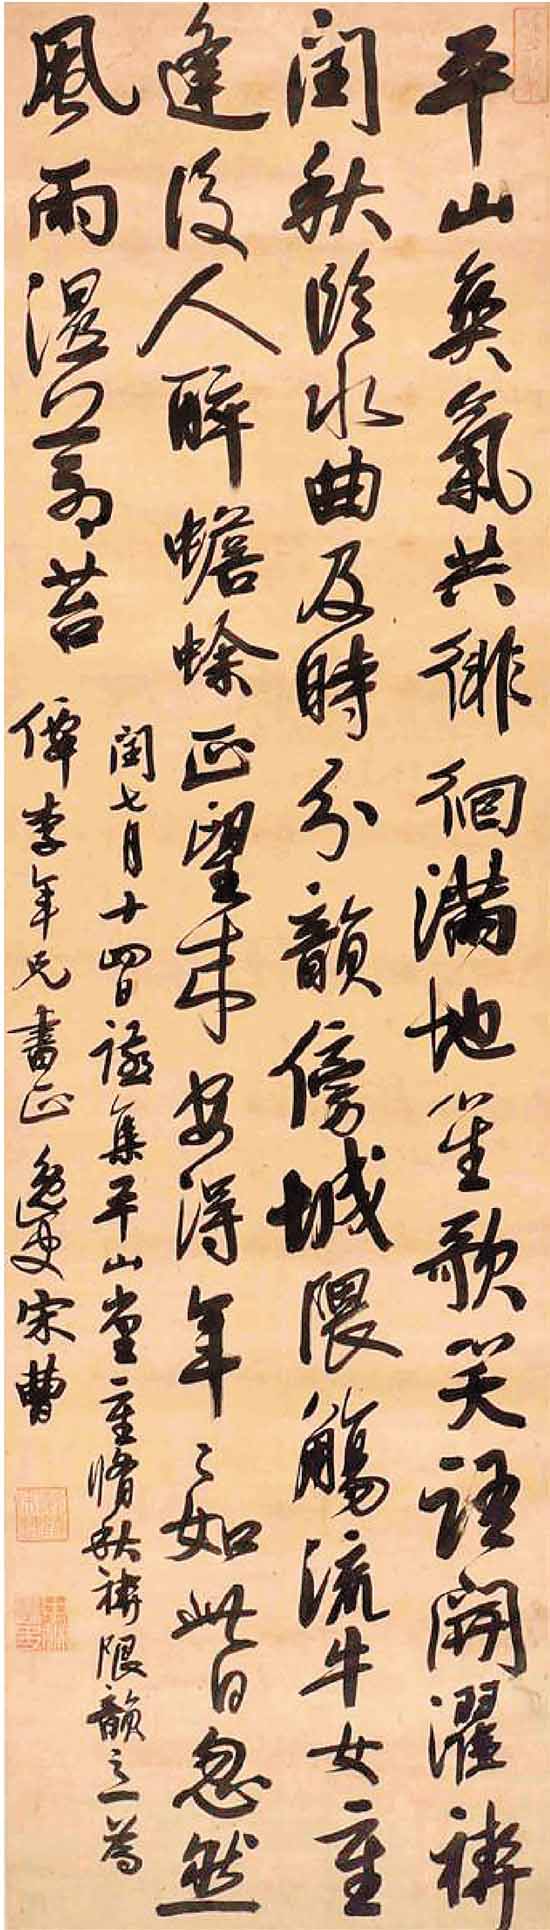 平山爽氣共徘徊滿地笙歌笑語開濯禊
閏秋臨水曲及時分韻傍城隈觴流牛女重
逢後人醉蟾蜍正望來安得年〻如此日忽然
風雨濕苔
閏七月十四日讌集平山堂重脩秋禊限韻之一為
僊李年兄書正逸史宋曹